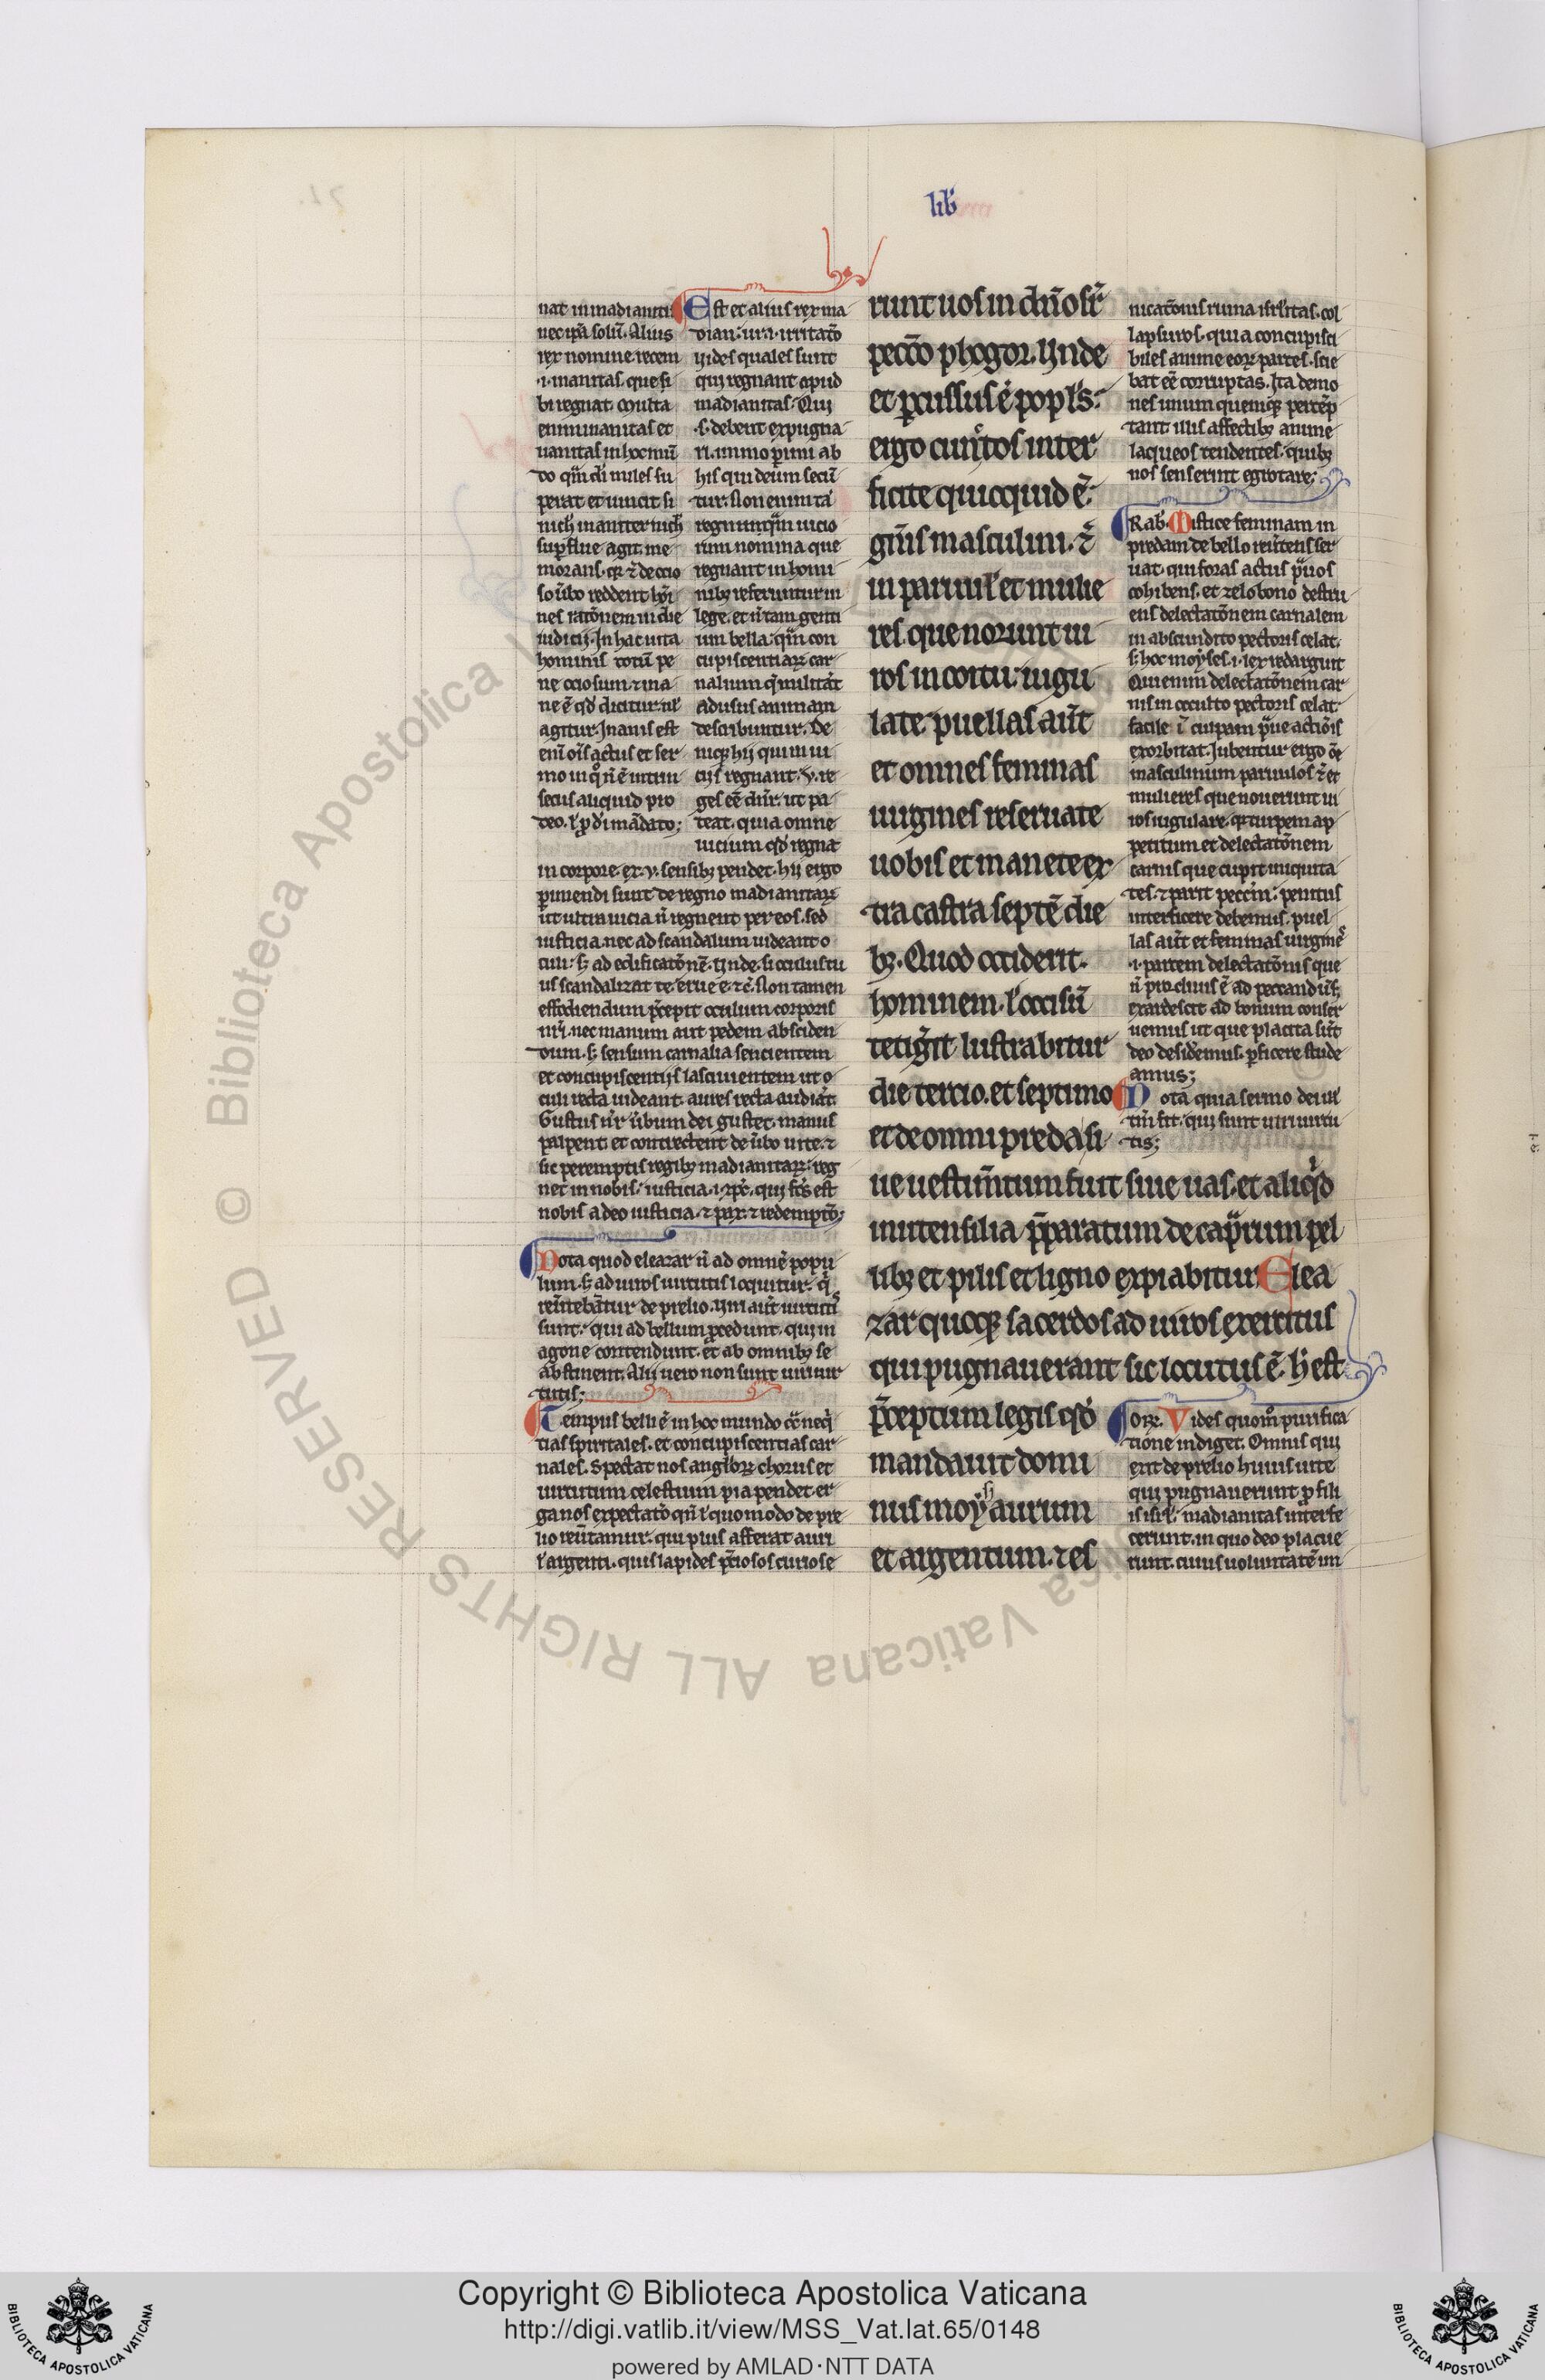 lib̾
nat in madianitis
nec ip̃a solũ. Alius
rex nomine recem
.i. inanitas. que si
bi regnat. Multa
enim inanitas et
uanitas in hoc mũ
do qm̃ di miles su
perat et uincit si
nich̾ inaniter nich̾
sup̃flue agit. me
morans. qz ⁊ de ocio
so ũbo reddent ho̾i
nes ratõnem in die
iudicij. In hac uita
hominis totũ pe
ne ociosum. ⁊ ina
ne ẽ qd̾ dicitur ul̾
agitur. Inanis est
eni̾ oĩs actus et ser
mo in qͦ ñ ẽ intrin
secus aliquid pro
deo. l̾ p̱ dĩ mãdato;
Est et alius rex ma
dian. ur. i. irritatõ
Vides quales sunt
qui regnant apud
madianitas. Qui
.s. debent expugna
ri. immo perimi ab
his qui deum secũ
tur. Non enim tã
regnũ uicio
rum nomina que
regnant in homi
nibꝫ referuntur in
lege. et ñ tam genti
um bella. qm̃ con
cupiscentiaꝝ car
nalium q̃ militãt
aduersus animam
describuntur. De
nicqꝫ hij qui in ui
cijs regnant. v. re
ges eẽ dñr. ut pa
teat. quia omne
uicium qd̾ regnat
in corpore. ex .v. sensibꝫ pendet. hij ergo
p̱imendi sunt de regno madianitaꝝ
ut ultra uicia ñ regnent per eos. sed
iusticia. nec ad scandalum uideant o
culi. sꝫ ad edificatõnẽ. Vnde. si oculus tu
us scandalizat te. erue e. ⁊c̃. Non tamen
effodiendum p̃cepit oculum corporis
nr̃i. nec manum aut pedem absciden
dum. sꝫ sensum carnalia sencientem
et concupiscentijs lasciuientem ut o
culi recta uideant. aures recta audiãt.
Gustus nr̃ ũbum dei gustet. manus
palpent. et contrectent de ũbo uite. ⁊
sic peremptis regibꝫ madianitaꝝ. reg
net in nobis. iusticia. i. xp̃c. qui fc̃s est
nobis a deo iusticia. ⁊ pax. ⁊ redemptõ;
Nota quod eleazar ñ ad omnẽ popu
lum. sꝫ ad uiros uirtutis loquitur. q̃
reũtebãtur de prelio. Viri aũt uirtutis
sunt. qui ad bellum p̱cedunt. qui in
agone contendunt. et ab omnibꝫ se
abstinent. Alij uero non sunt uiri uir
tutis;
Tempus belli ẽ in hoc mundo cõ neq̾
tias spiritales. et concupiscentias car
nales. Spectat nos angl̾oꝝ chorus et
uirtutum celestium pia pendet er
ga nos expectatõ qñ l̾ quomodo de pre
lio reũtamur. qui plus afferat auri
l̾ argenti. quis lapides p̃ciosos curiose
runt uos in dñoſ sr̃
pecc̃o phogor. Vnde
et p̱cussus ẽ popl̾s.
ergo cunctos inter
ficite quicquid ẽ
geñis masculini. ⁊
in paruul̾ et mulie
res que norunt ui
ros in coitu: iugu
late. puellas aũt
et omnes feminas
uirgines reseruate
uobis et manete ex
tra castra septẽ die
bꝫ. Quod occiderit
hominem. l̾ occisũ
tetig̾it lustrabitur
die tercio. et septimo
et de omni preda si
ue uestim̃tum fuit siue uas. et aliqͥd
in utensilia p̃paratum de cap̃rum pel
libꝫ et pilis et ligno expiabitur Elea
zar quoqꝫ sacerdos ad uiros exercitus
qui pugnauerant sic locutus ẽ. h̾ est
p̃ceptum legis qd̾
mandauit domi
nus moyh̾ aurum
et argentum. ⁊ es
nicatõnis ruina isrl̾itas. col
lapsuros. quia concupisci
biles anime eoꝝ partes. scie
bat eẽ corruptas. Ita demo
nes unum quemqꝫ pertẽp
tant illis affectibꝫ anime
laqueos tendentes. quibꝫ
nos senserint egrotare;
Rab̾. Mistice feminam in
predam de bello reũtens ser
uat. qui foras actus p̃uos
cohibens. et zelo bono destru
ens delectatõnem carnalem
in abscundito pectoris celat.
sꝫ hoc moyses. i. lex redarguit
Qui enim delectatõnem car
nis in occulto pectoris celat.
facile ĩ culpam p̃ue actiõis
exorbitat. Jubentur ergo õe
masculinum paruulos ⁊ et
mulieres que nouerunt ui
ros iugulare. qꝫ turpem ap
petitum et delectatõnem
carnis que cupit iniquita
tes. ⁊ parit pecc̃m: penitus
interficere debemus. puel
las aũt et feminas uirgines
.i. partem delectatõnis que
ñ procliuis ẽ ad peccandũ sꝫ
exardescit ad bonum conser
uemus ut que placita sũt
deo desid̾emus. p̱ficere stude
amus;
Nota quia sermo dei ul̾
tiñ fit. qui sunt uiri uirtu
tis;
Orꝫ. Vides quomͦ purifica
tione indiget. Omnis qui
exit de prelio huius uite
qui pugnauerunt p̱ fili
is isrl̾. madianitas interfe
cerunt. in quo deo placue
runt. cuius uoluntatẽ im
Copyright © Biblioteca Apostolica Vaticana
http://digi.vatlib.it/view/MSS_Vat.lat.65/0148
powered by AMLAD·NTT DATA
© Biblioteca Apostolica Vaticana ALL RIGHTS RESERVED
BIBLIOTECA APOSTOLICA VATICANA
BIBLIOTECA APOSTOLICA VATICANA